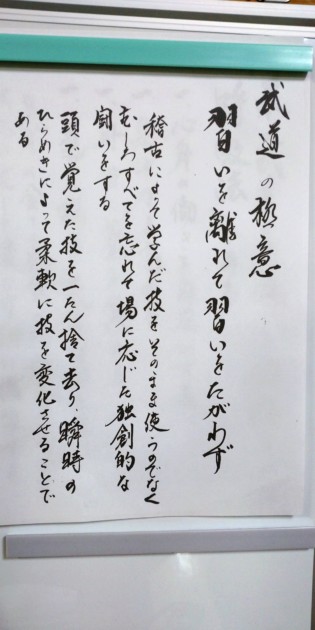 武道の極意
習いを離れて習いをたがわず
稽古によって学んだ技をそのまま使うのでなく
むしろすべてを忘れて場に応じた独創的な
闘いをする
頭で覚えた技を一たん捨て去り、瞬時の
ひらめきによって柔軟に技を変化させることで
ある